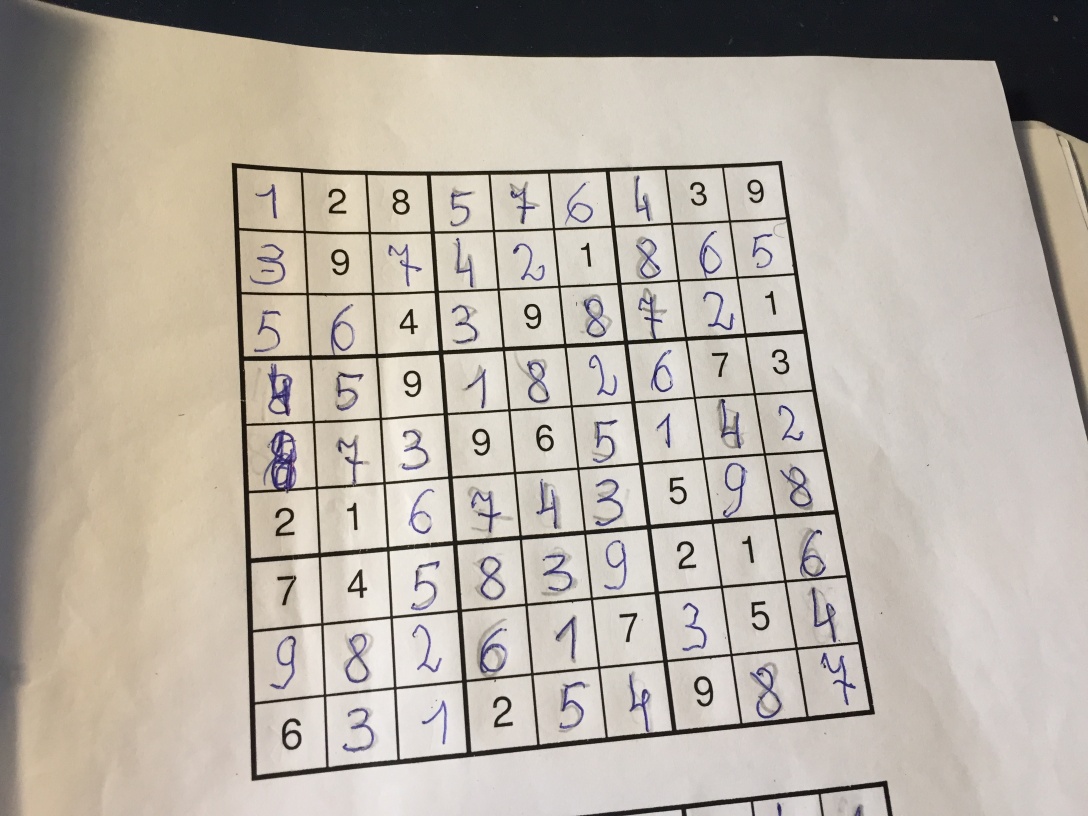 1 2 8 5 7 6 4 3 9
3 9 7 4 2 1 8 6 5
5 6 4 3 9 8 7 2 1
4 5 9 1 8 2 6 7 3
8 7 3 9 6 5 1 4 2
2 1 6 7 4 3 5 9 8
7 4 5 8 3 9 2 1 6
9 8 2 6 1 7 3 5 4
6 3 1 2 5 4 9 8 7